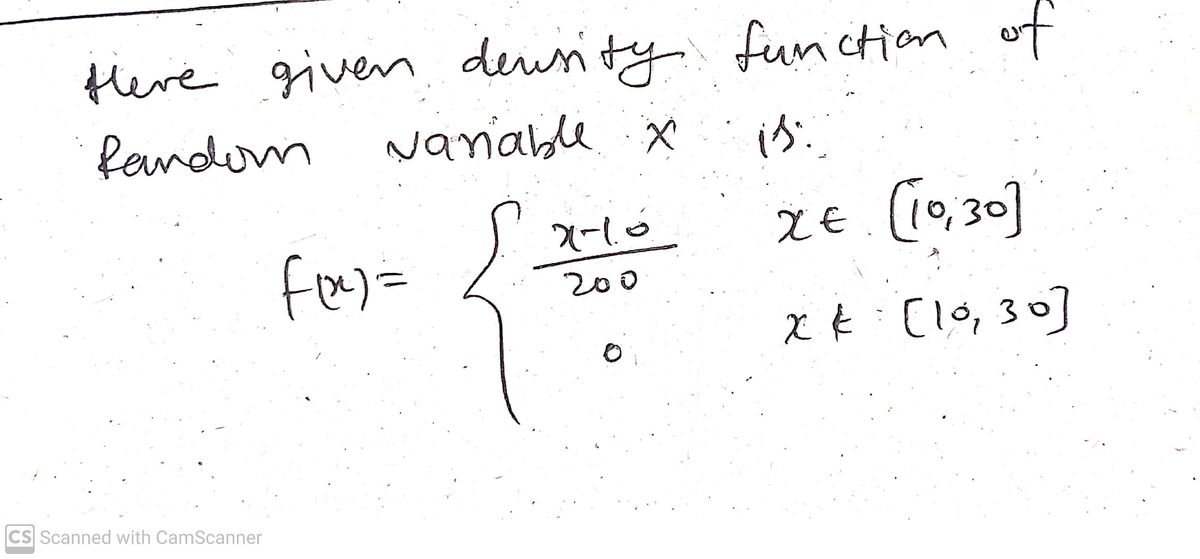 Here given density function of
Random variable X is:
f(x) = { x-10 / 200 x ∈ [10,30]
0 x ∉ [10, 30]
CS Scanned with CamScanner